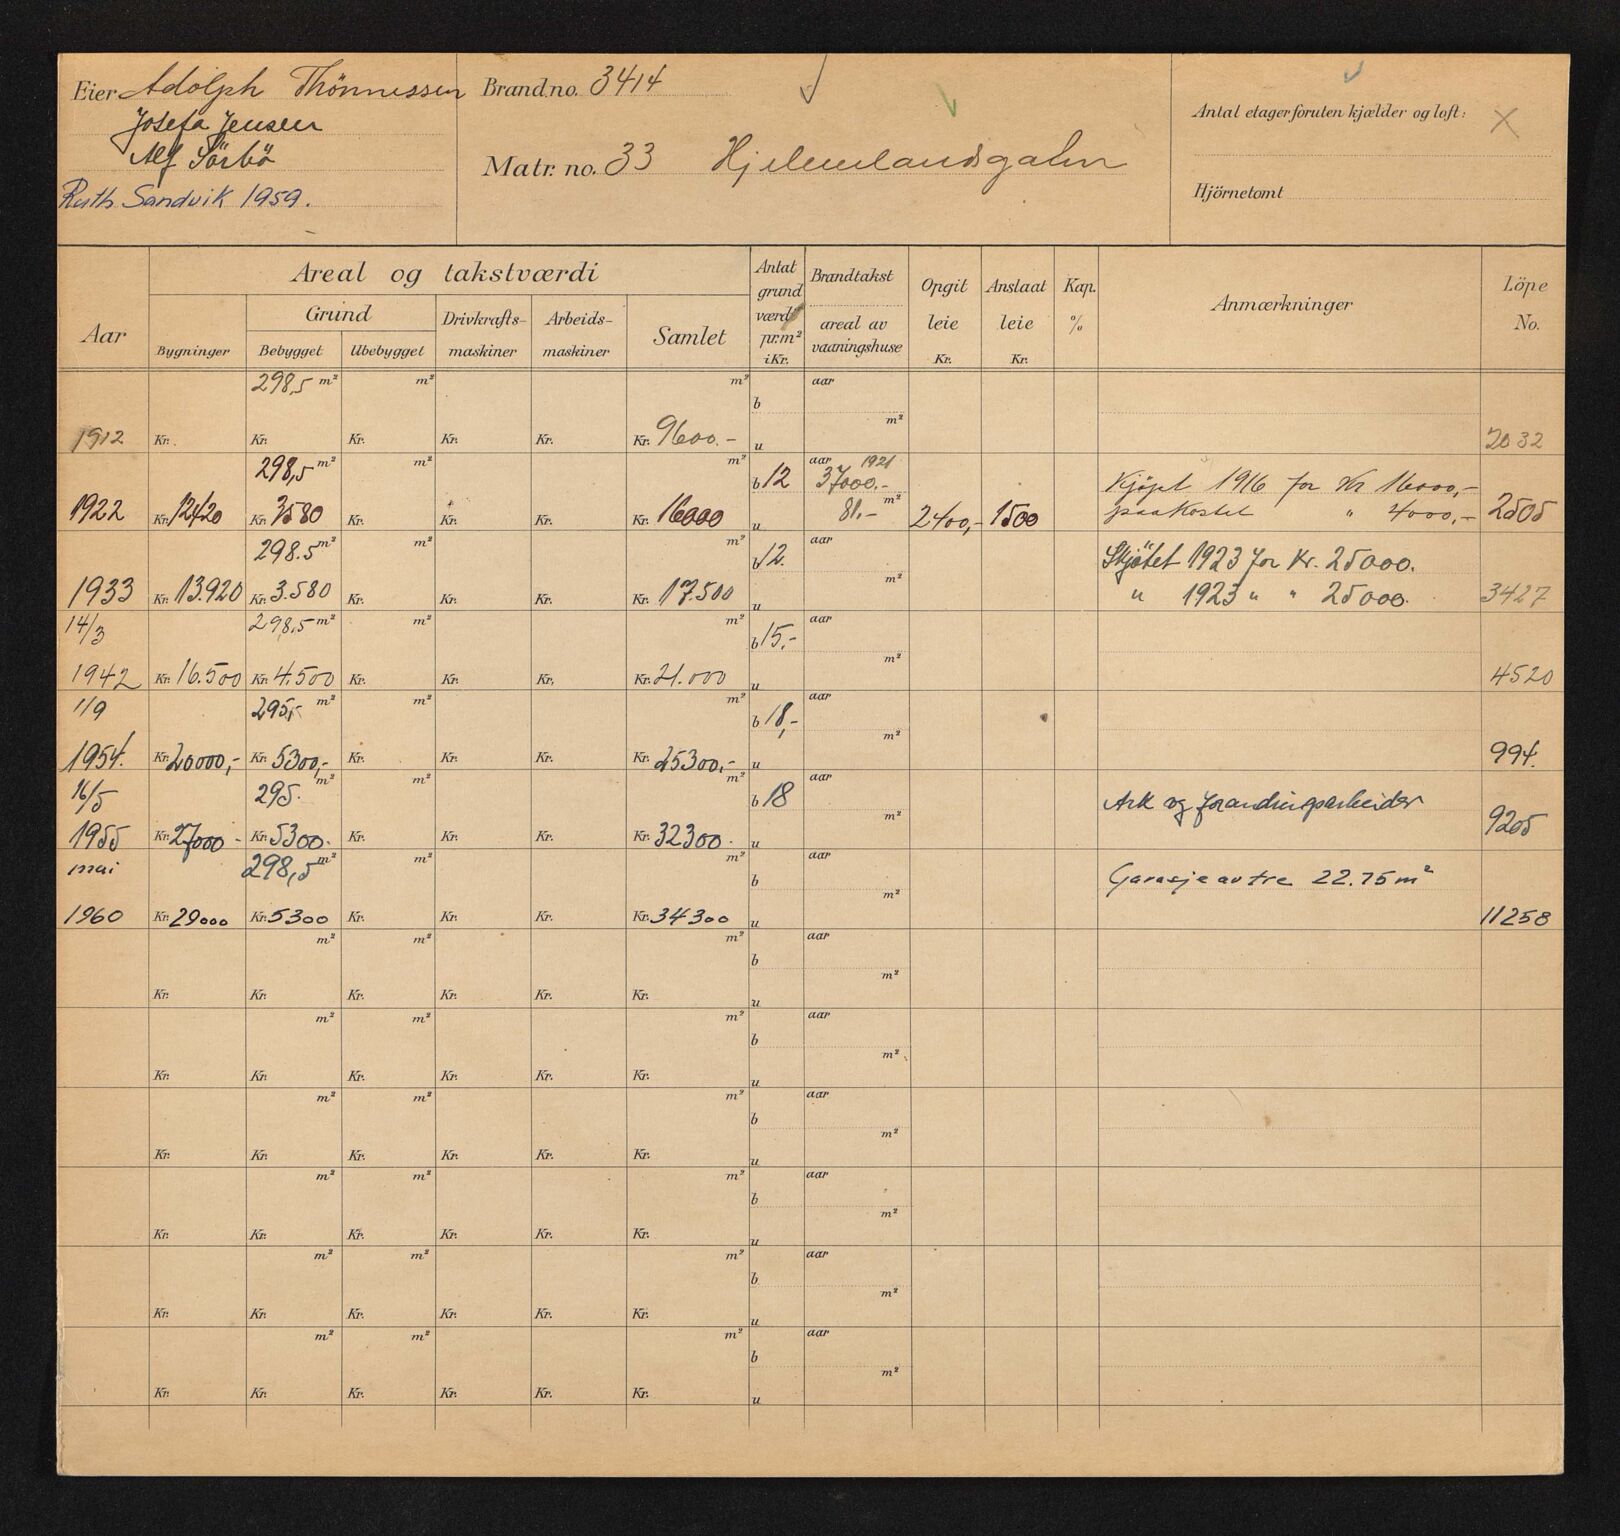 Eier Adolph Thönnessen
Josefa Jensen
Alf Sörbö
Ruth Sandvik 1959.
Brand.no. 3414
Matr. no. 33 Hjelmelandsgaten
Antal etager foruten kjælder og loft: X
Hjörnetomt
Aar
Areal og takstværdi
Bygninger
Grund
Bebygget
Ubebygget
Drivkrafts-
maskiner
Arbeids-
maskiner
Samlet
Antat
grund
værdi
pr.m²
i Kr.
Brandtakst
areal av
vaaningshuse
Opgit
leie
Kr.
Anslaat
leie
Kr.
Kap.
%
Anmærkninger
Löpe
No.
298,5 m² m² m² aar
b
m²
1912 Kr. Kr. Kr. Kr. Kr. Kr. 9600.- u 2032
298,5 m² m² m² b 12 aar 1921
37000.- Kjöpt 1916 for Kr 16000,-
1922 Kr. 12420 Kr. 3580 Kr. Kr. Kr. Kr. 16000 u 81.- m² 2400,- 1500 paakostet " 4000,- 2505
298.5 m² m² m² b 12. aar Skjötet 1923 for Kr. 25000.
1933 Kr. 13.920 Kr. 3.580 Kr. Kr. Kr. Kr. 17.500 u m² " 1923 " " 25000. 3427
14/3 298,5 m² m² m² b 15,- aar
m²
1942 Kr. 16.500 Kr. 4.500 Kr. Kr. Kr. Kr. 21.000 u 4520
1/9 295,- m² m² m² b 18,- aar
m²
1954. Kr. 20000,- Kr. 5300,- Kr. Kr. Kr. Kr. 25300,- u 994.
16/5 295. m² m² m² b 18 aar Ark og forandringsarbeider
m²
1955 Kr. 27000- Kr. 5300. Kr. Kr. Kr. Kr. 32300. u 9205
mai 298,5 m² m² m² b aar Garasje av tre 22.75 m²
m²
1960 Kr. 29000 Kr. 5300 Kr. Kr. Kr. Kr. 34300 u 11258
m² m² m² aar
b
m²
Kr. Kr. Kr. Kr. Kr. Kr. u
m² m² m² aar
b
m²
Kr. Kr. Kr. Kr. Kr. Kr. u
m² m² m² aar
b
m²
Kr. Kr. Kr. Kr. Kr. Kr. u
m² m² m² aar
b
m²
Kr. Kr. Kr. Kr. Kr. Kr. u
m² m² m² aar
b
m²
Kr. Kr. Kr. Kr. Kr. Kr. u
m² m² m² aar
b
m²
Kr. Kr. Kr. Kr. Kr. Kr. u